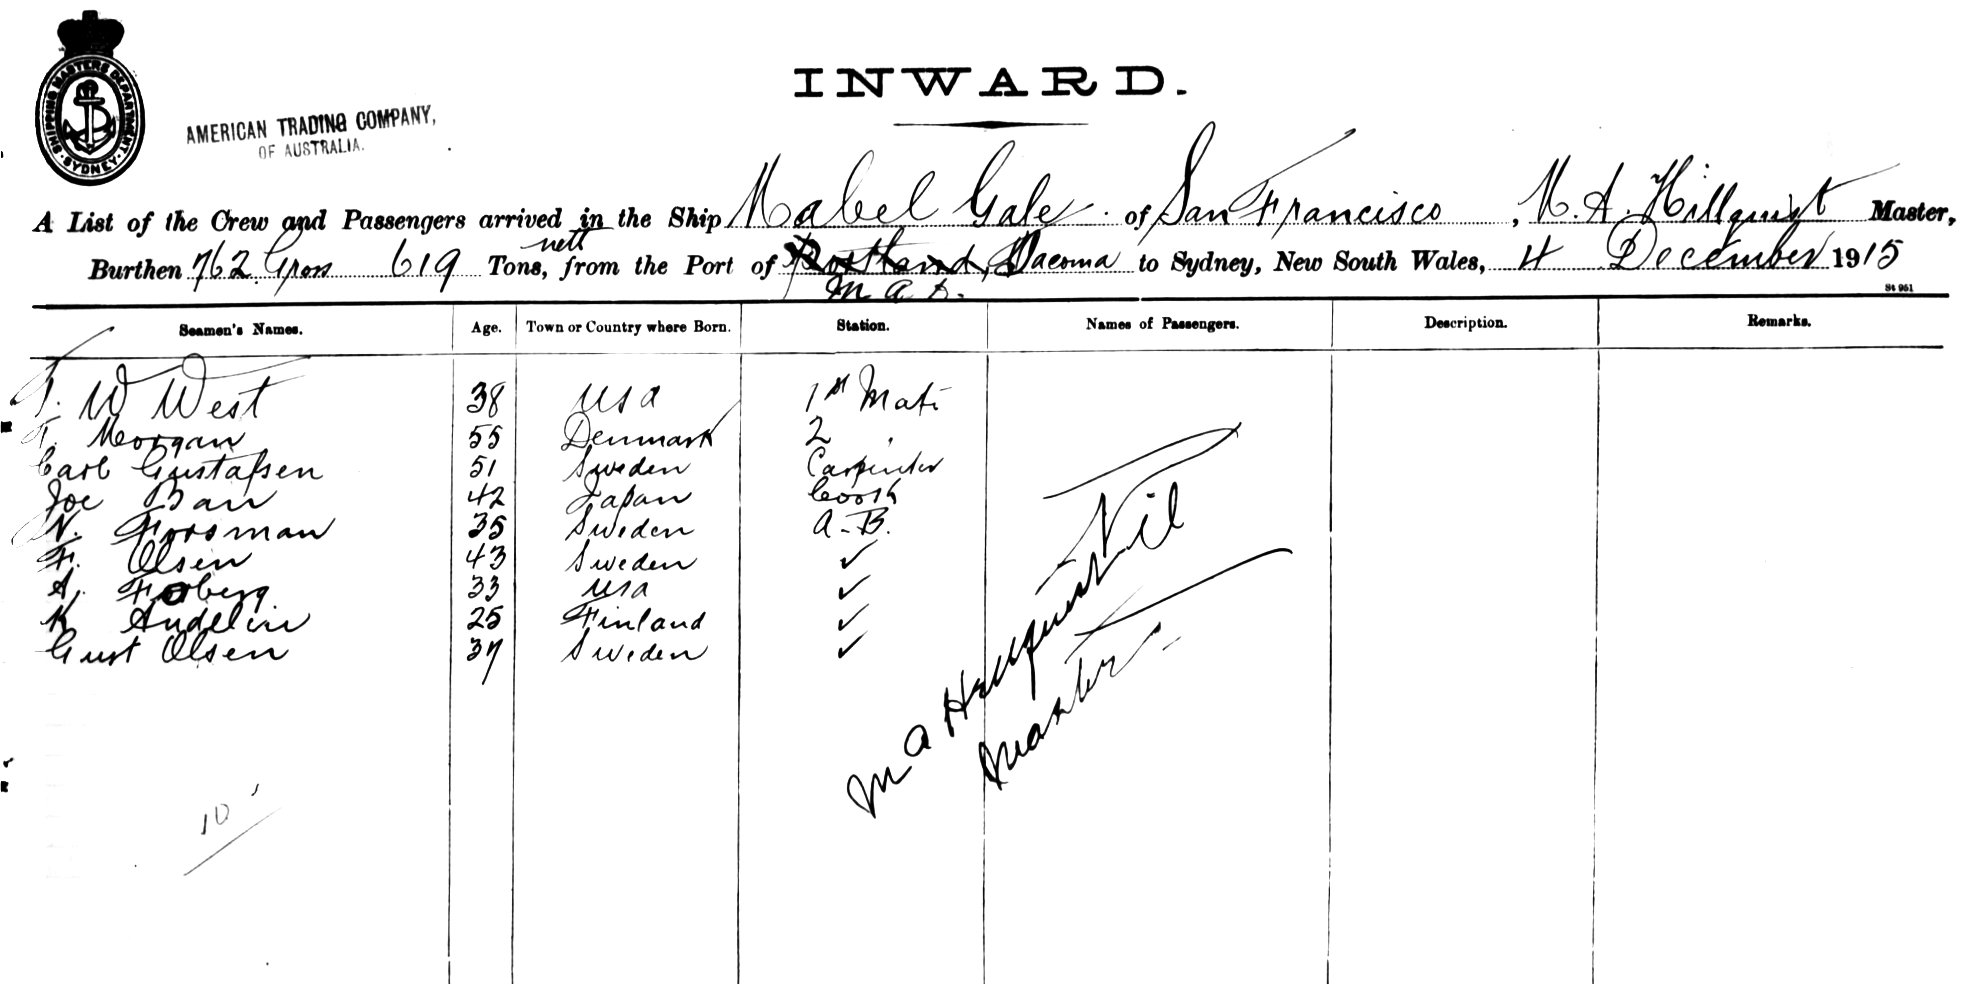 SHIPPING MASTERS DEPARTMENT. SYDNEY.
INWARD.
AMERICAN TRADING COMPANY,
OF AUSTRALIA.
A List of the Crew and Passengers arrived in the Ship Mabel Gale of San Francisco, M. A. Hillquist Master,
Burthen 762 Gross 619 nett Tons, from the Port of Portland, Tacoma to Sydney, New South Wales, 4 December 1915
M A H.
St 951
Seamen's Names. Age. Town or Country where Born. Station. Names of Passengers. Description. Remarks.
T. W West 38 USA 1st Mate
T. Morgan 55 Denmark 2 "
Carl Gustafsen 51 Sweden Carpenter
Joe Ban 42 Japan Cook
N. Forsman 35 Sweden A.B.
F. Olsen 43 Sweden ✓
A. Foberg 33 USA ✓
K Andelin 25 Finland ✓
Gust Olsen 37 Sweden ✓
Nil
M A Hillquist
Master
10